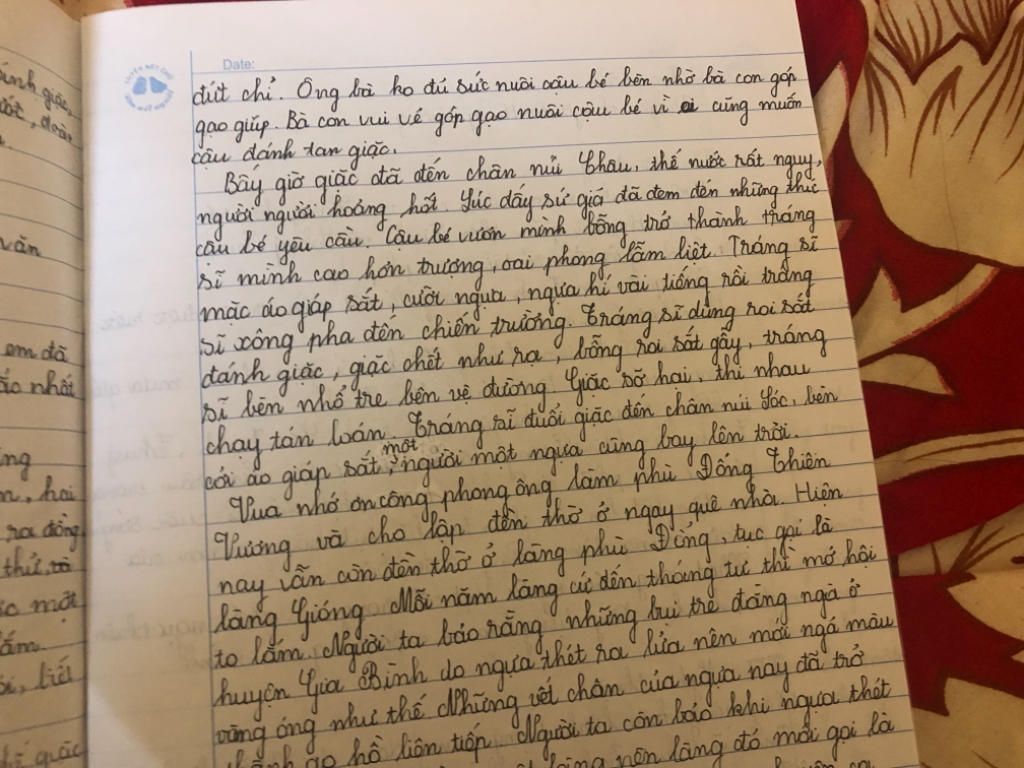 Date:
đứt chỉ. Ông bà ko đủ sức nuôi cậu bé bèn nhờ bà con góp
gạo giúp. Bà con vui vẻ góp gạo nuôi cậu bé vì ai cũng muốn
cậu đánh tan giặc.
Bấy giờ giặc đã đến chân núi Châu, thế nước rất nguy,
người người hoảng hốt. Lúc đấy sứ giả đã đem đến những thứ
cậu bé yêu cầu. Cậu bé vươn mình bỗng trở thành tráng
sĩ mình cao hơn trượng, oai phong lẫm liệt. Tráng sĩ
mặc áo giáp sắt, cưỡi ngựa, ngựa hí vài tiếng rồi tráng
sĩ xông pha đến chiến trường. Tráng sĩ dùng roi sắt
đánh giặc, giặc chết như rạ, bỗng roi sắt gẫy, tráng
sĩ bèn nhổ tre bên vệ đường. Giặc sỡ hai, thi nhau
chạy tán loán. Tráng sĩ đuổi giặc đến chân núi Sóc, bèn
cởi áo giáp sắt, một người một ngựa cũng bay lên trời.
Vua nhớ ơn công phong ông làm phù Đổng Thiên
Vương và cho lập đền thờ ở ngay quê nhà. Hiện
nay vẫn còn đền thờ ở làng phù Đổng, tục gọi là
làng Gióng. Mỗi năm làng cứ đến tháng tư thì mở hội
to lắm. Người ta bảo rằng những bụi tre đằng ngà ở
huyện Gia Bình do ngựa thét ra lửa nên mới ngả màu
vàng óng như thế. Những vết chân của ngựa nay đã trở
thành ao hồ liên tiếp. Người ta còn bảo khi ngựa thét
làng nên làng đó mới gọi là